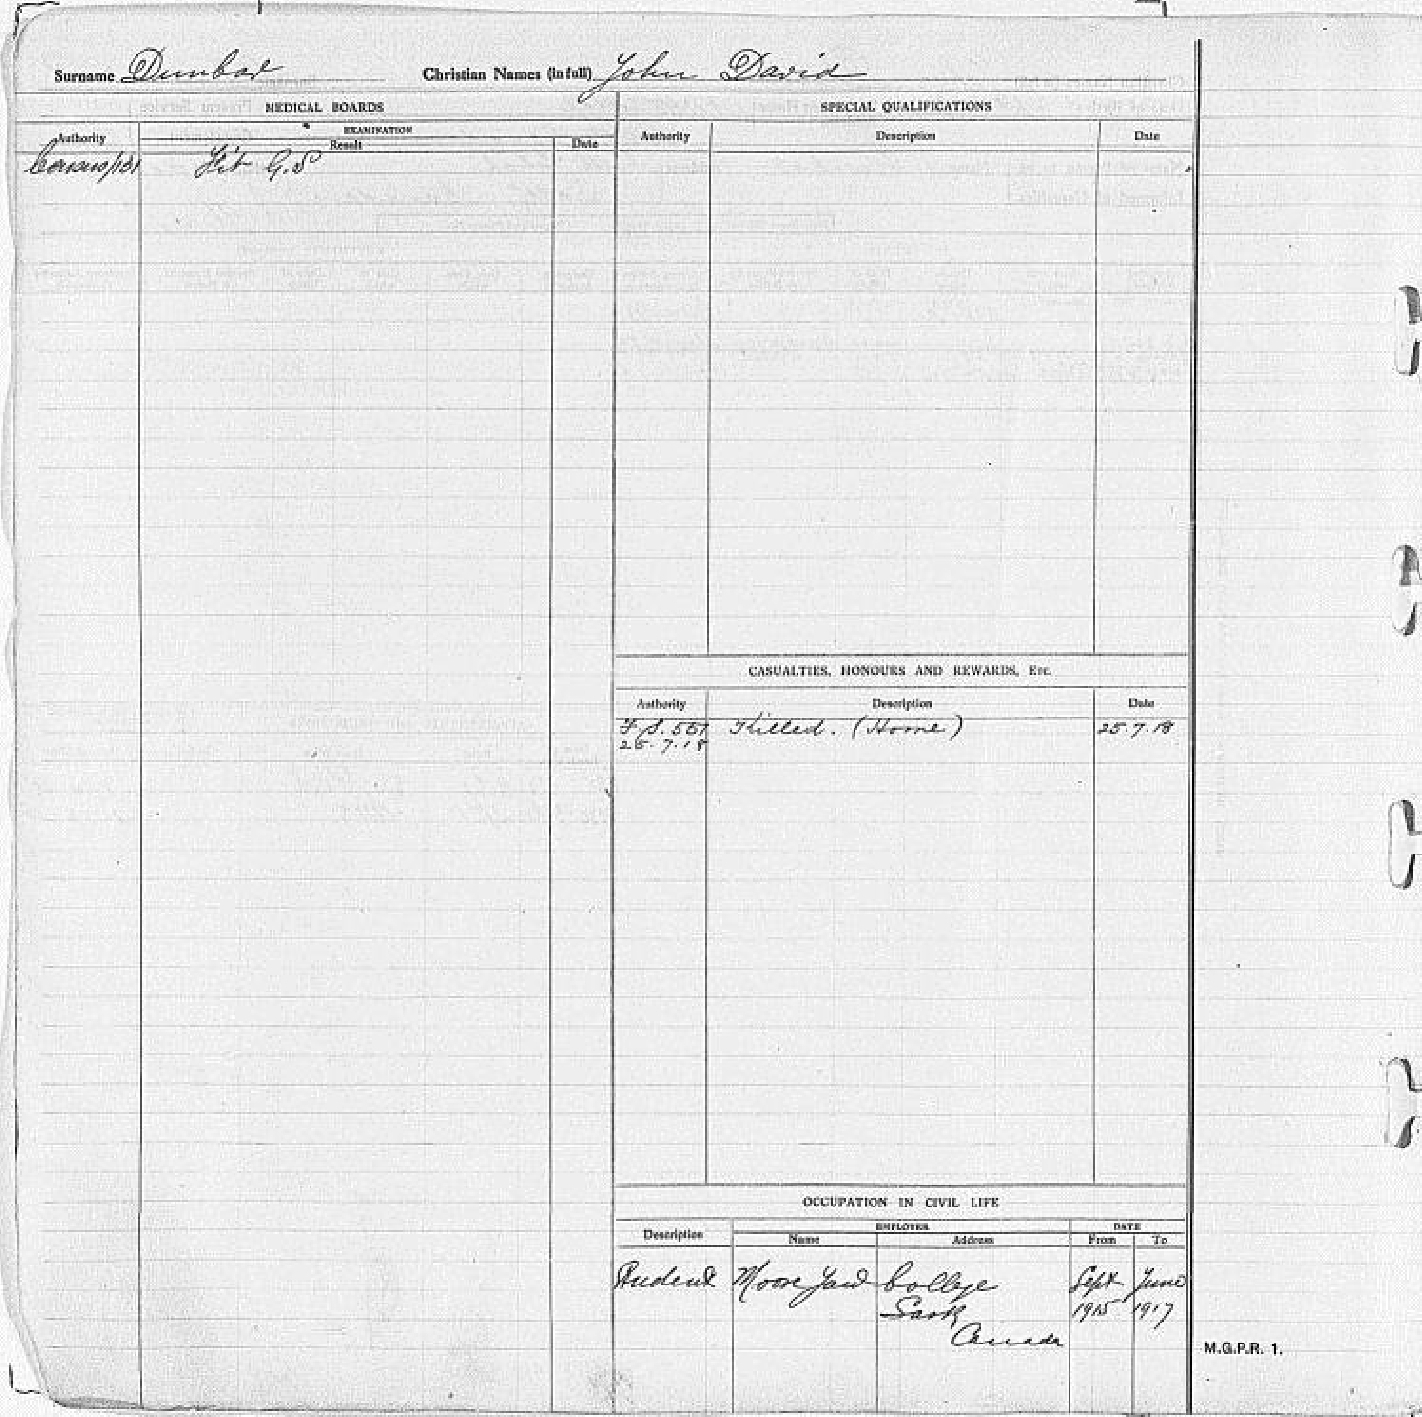 Surname Dunbar Christian Names (in full) John David
MEDICAL BOARDS
Authority EXAMINATION
Result Date
Census/131 Fit G.S
SPECIAL QUALIFICATIONS
Authority Description Date
CASUALTIES, HONOURS AND REWARDS, Etc.
Authority Description Date
F.S. 551 Killed. (Home) 25.7.18
25.7.18
OCCUPATION IN CIVIL LIFE
Description EMPLOYER DATE
Name Address From To
Student Moose Jaw College Sept June
Sask 1915 1917
Canada
M.G.P.R. 1.